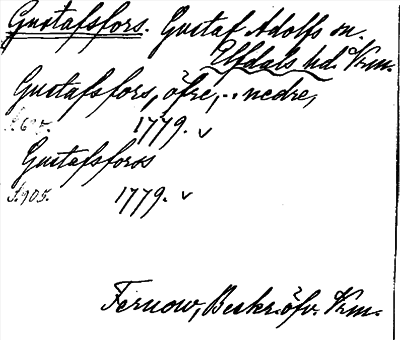 Gustafsfors. Gustaf Adolfs sn.
Elfdals hd. Vrm.
Gustafsfors, öfre, - nedre,
S. 695. 1779. v
Gustafsforss
S. 905. 1779. v
Fernow, Beskr. öfv. Vrm.